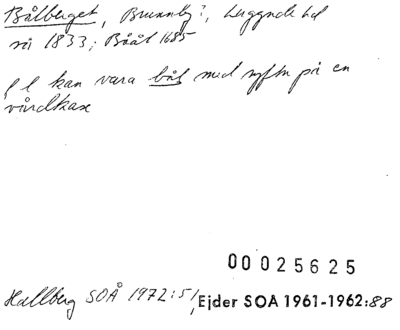 Bålberget, Brunnby?, Luggude hd
så 1833; Båål 1685
f l kan vara bål med syftn på en
vårdkase
00 025625
Hallberg SOÅ 1972:51, Ejder SOA 1961-1962:88